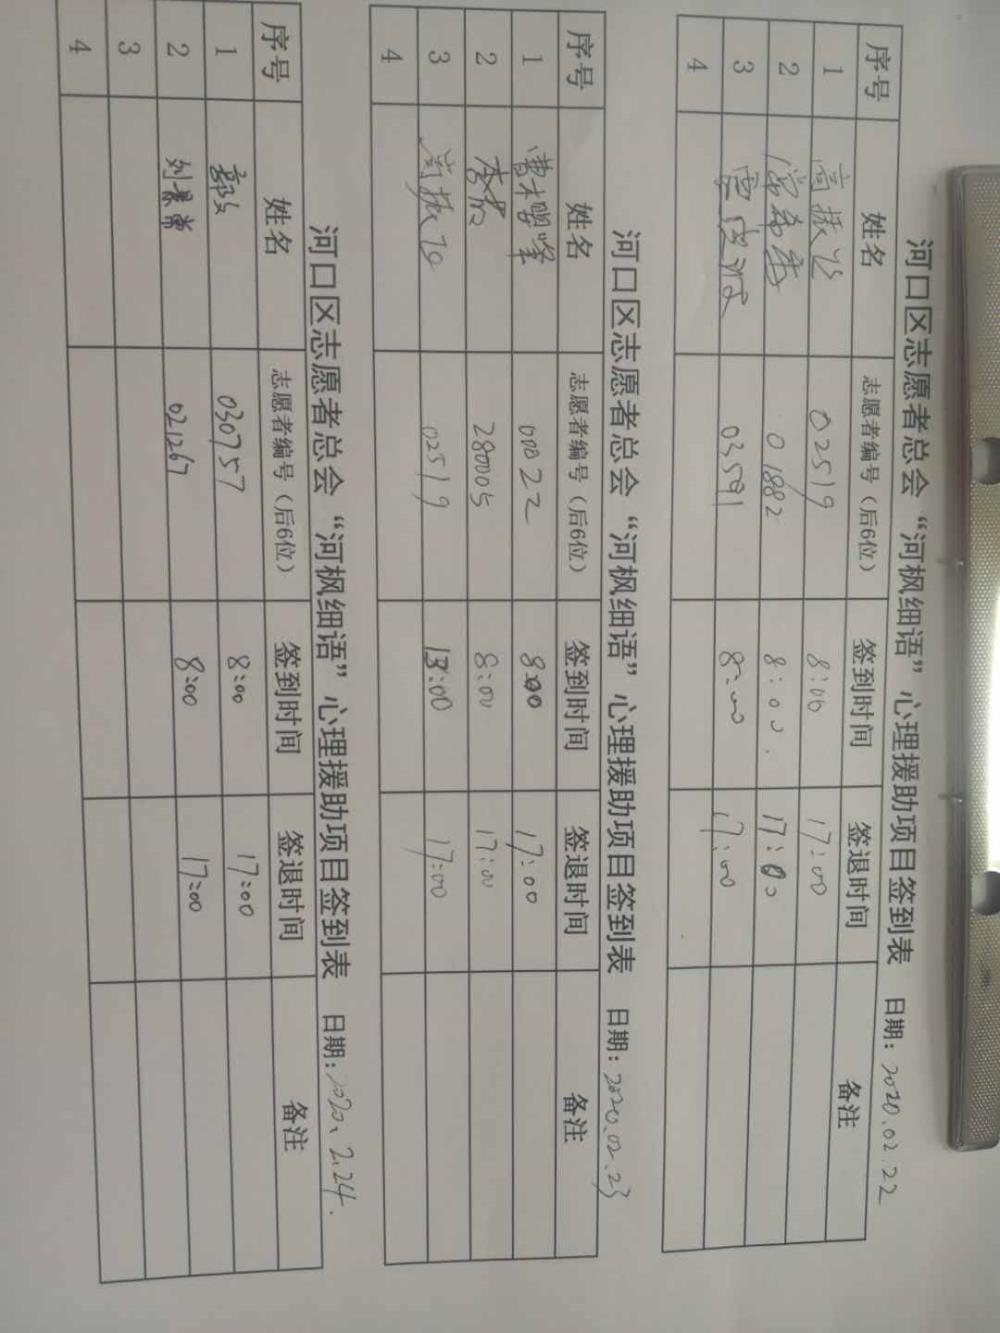 河口区志愿者总会“河枫细语”心理援助项目签到表 日期：2020.02.22
序号 姓名 志愿者编号（后6位） 签到时间 签退时间 备注
1 尚振飞 02519 8:00 17:00
2 01882 8:00. 17:00
3 03591 8:00 17:00
4
河口区志愿者总会“河枫细语”心理援助项目签到表 日期：2020.02.23
序号 姓名 志愿者编号（后6位） 签到时间 签退时间 备注
1 00022 8:00 17:00
2 280005 8:00 17:00
3 尚振飞 02519 13:00 17:00
4
河口区志愿者总会“河枫细语”心理援助项目签到表 日期：2020.2.24.
序号 姓名 志愿者编号（后6位） 签到时间 签退时间 备注
1 030757 8:00 17:00
2 021267 8:00 17:00
3
4